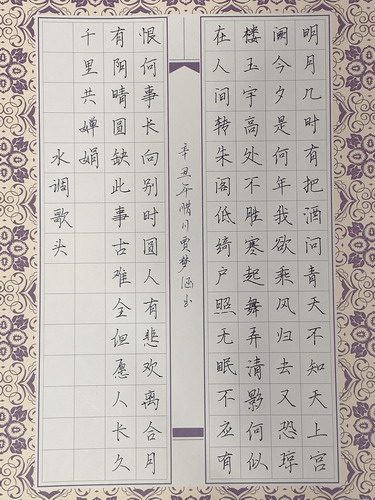 明月几时有把酒问青天不知天上宫
阙今夕是何年我欲乘风归去又恐琼
楼玉宇高处不胜寒起舞弄清影何似
在人间转朱阁低绮户照无眠不应有
辛丑年惜川贾梦涵书
恨何事长向别时圆人有悲欢离合月
有阳晴圆缺此事古难全但愿人长久
千里共婵娟
水调歌头